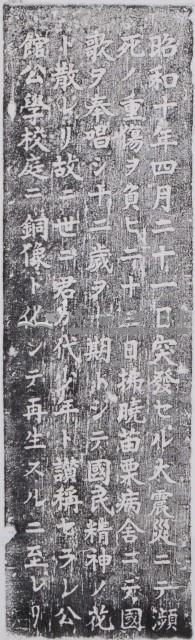 昭和十年四月二十一日突發セル大震災ニテ瀕
死ノ重傷ヲ負ヒ二十二日拂曉苗栗病舍ニテ國
歌ヲ奉唱シ十二歲ヲ一期トシテ國民精神ノ花
ト散レリ故ニ世ニ君ガ代少年ト讃稱セラレ公
館公學校庭ニ銅像ト化シテ再生スルニ至レリ